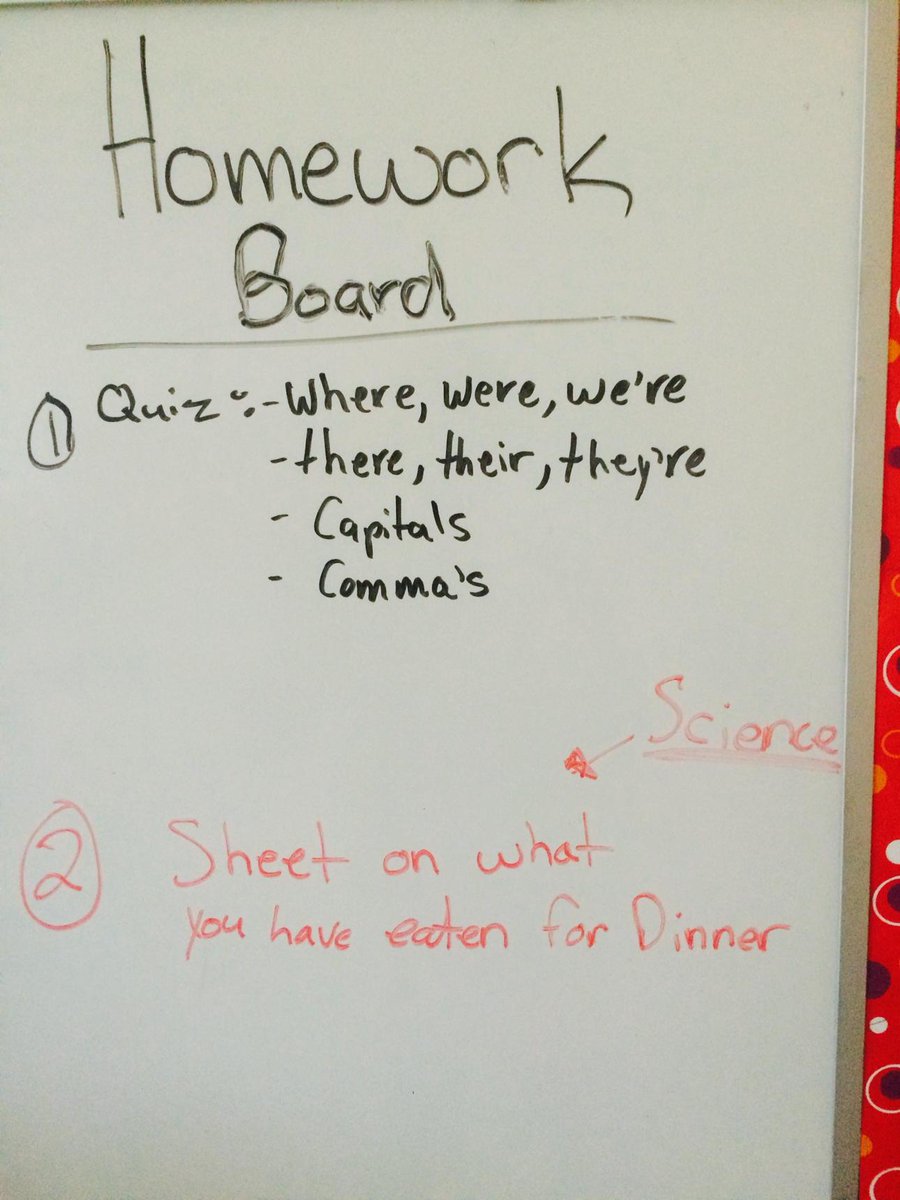 Homework
Board
① Quiz:- Where, were, we're
- there, their, they're
- Capitals
- Comma's
Science
② Sheet on what
you have eaten for Dinner